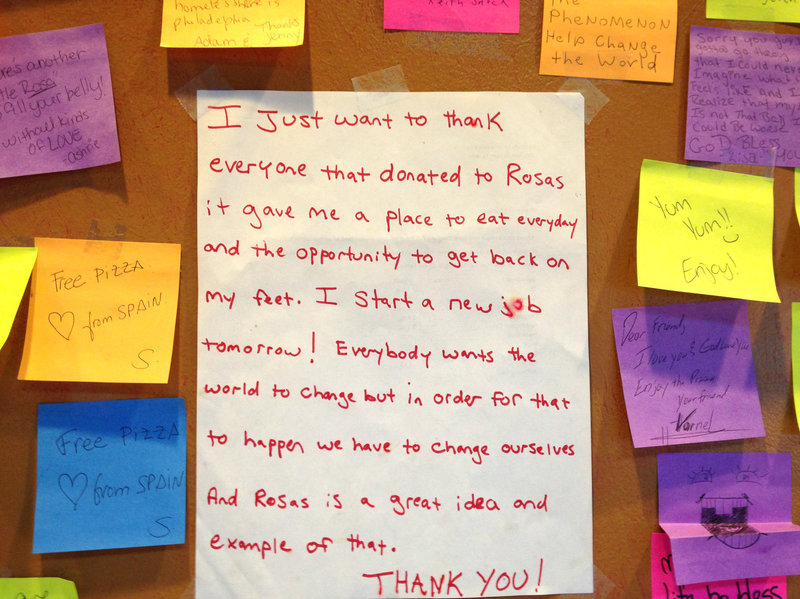 homelessness is
philadelphia
Thanks
Adam & Jenny
Keith
The
PHENOMENON
Help Change
the World
another
Rosa
fill your belly!
without kinds
of LOVE
Sorry you guys
that I could never
Imagine what
Feels LIKE And I
Realize that my
Is not That Bad I
Could Be Worse
GoD Bless
You
I Just want to thank
everyone that donated to Rosas
it gave me a place to eat everyday
and the opportunity to get back on
my feet. I Start a new job
tomorrow! Everybody wants the
world to change but in order for that
to happen we have to change ourselves
And Rosas is a great idea and
example of that.
THANK YOU!
Free PIZZA
♡ from SPAIN
S.
Free PIZZA
♡ from SPAIN
S
Yum
Yum!!
Enjoy!
Dear Friend,
I love you & God loves You
Enjoy the Pizza
Your friend
Varnel
life be bless